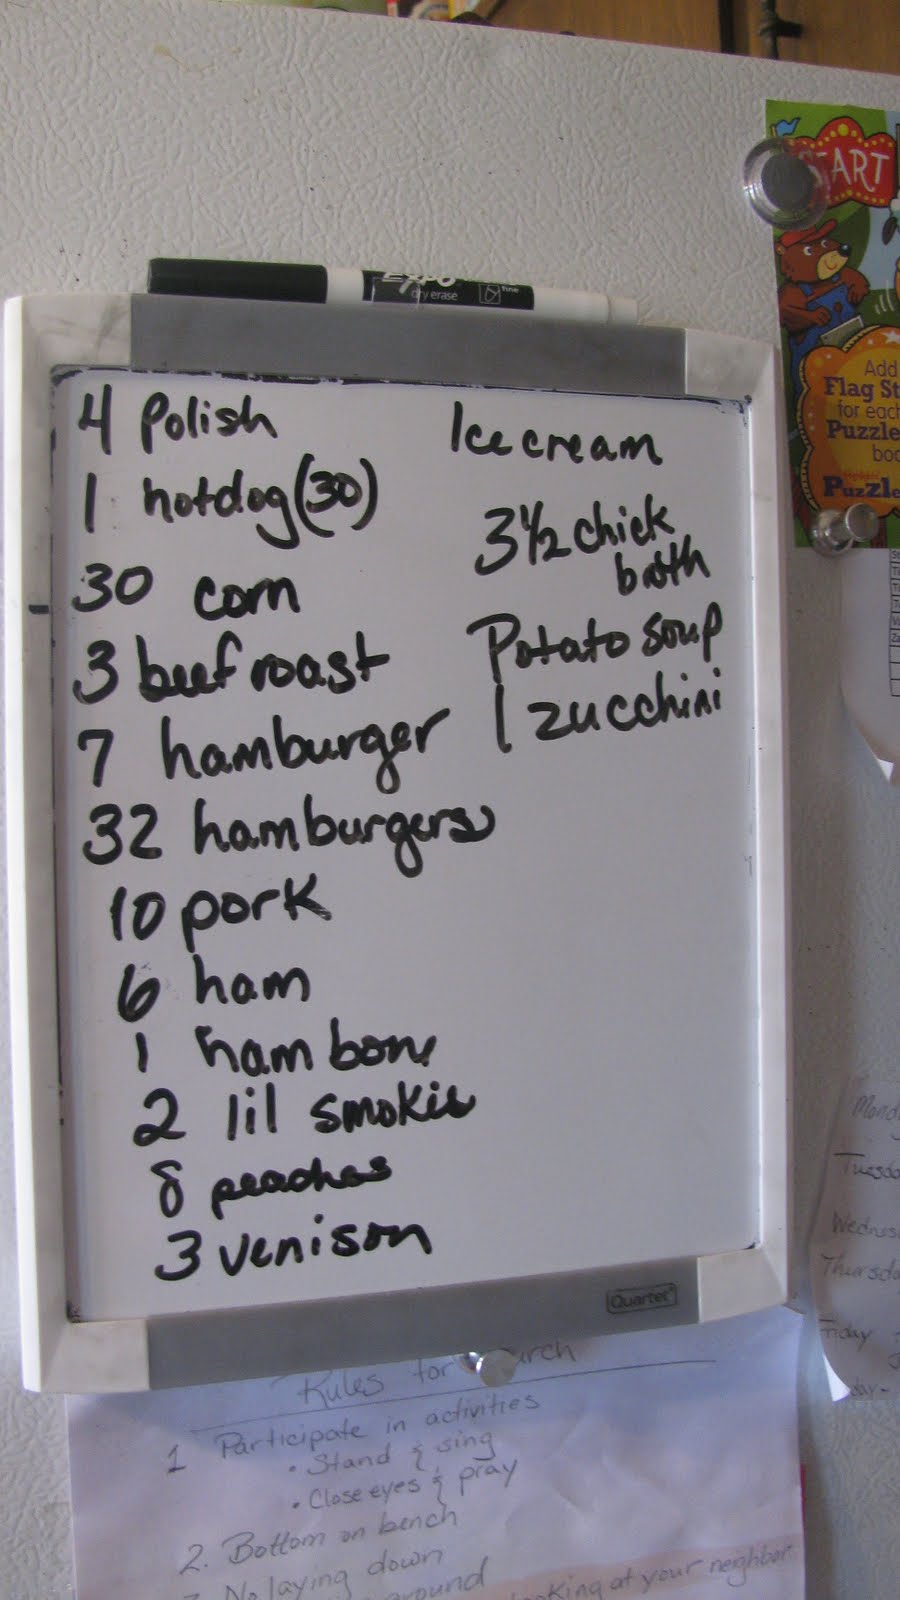 START
Add
Flag St
for each
Puzzle
boo
Puzzle
EXPO
dry erase
fine
4 Polish
1 hotdog (30)
30 corn
3 beef roast
7 hamburger
32 hamburgers
10 pork
6 ham
1 ham bone
2 lil smokie
8 peaches
3 venison
Ice cream
3 1/2 chick
broth
Potato soup
1 zucchini
Quartet
Rules for
1 Participate in activities
• Stand & sing
• Close eyes & pray
2. Bottom on bench
No laying down
around
looking at your neighbor
Mond
Tuesda
Wednes
Thursda
Friday
day-